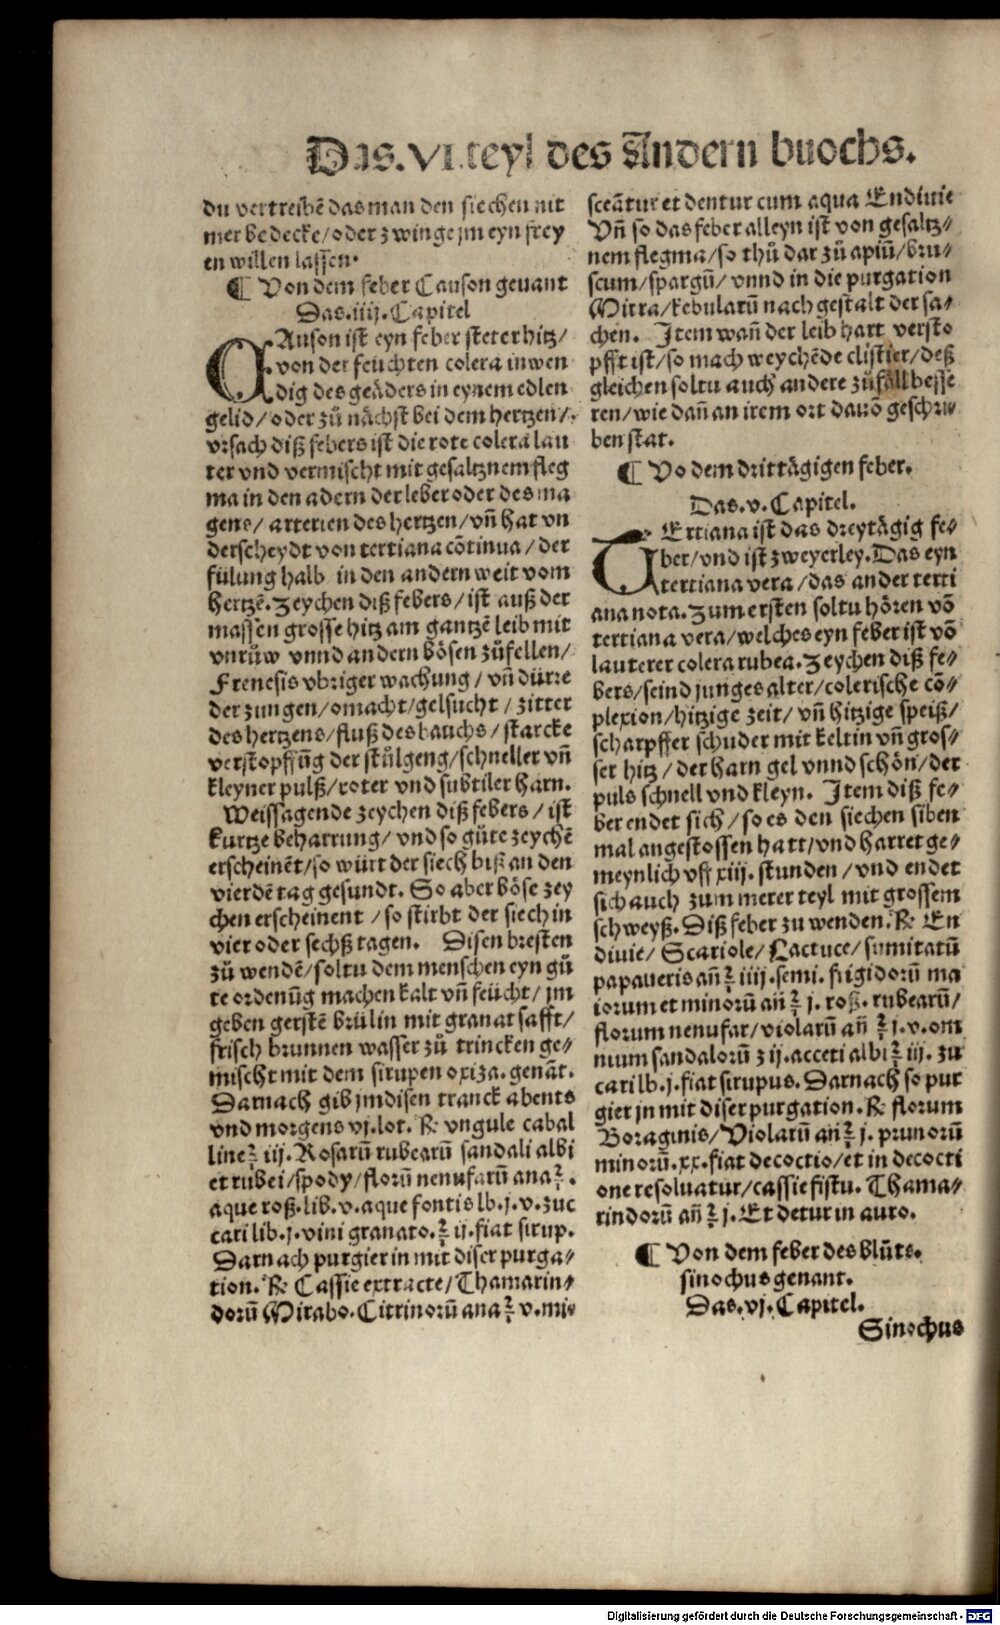 Das.VI.teyl des Andern buochs.
du vertreibē das man den siechen nit
mer bedecke/oder zwinge jm eyn frey
en willen lassen.
¶ Von dem feber Causon genant
Das.iiij.Capitel
CAuson ist eyn feber steter hitz/
von der feüchten colera inwen
dig des geäders in eynem edlen
gelid/oder zů nächst bei dem hertzen/
vrsach diß febers ist die rote colera lau
ter vnd vermischt mit gesaltznem fleg
ma in den adern der leber oder des ma
gens/ arterien des hertzen/vn̄ hat vn
derscheydt von tertiana cōtinua/der
fülung halb in den andern weit vom
hertzē.Zeychen diß febers/ist auß der
massen grosse hitz am gantzē leib mit
vnrůw vnnd andern bösen zůfellen/
Frenesis vbriger wachung/vn̄ dürre
der zungen/omacht/gelsucht/zitter
des hertzens/fluß des bauchs/starcke
verstopffūg der stůlgeng/schneller vn̄
kleyner pulß/roter vnd subtiler harn.
Weissagende zeychen diß febers/ist
kurtze beharrung/vnd so gůte zeychē
erscheinēt/so würt der siech biß an den
vierdē tag gesundt. So aber böse zey
chen erscheinent/so stirbt der siech in
vier oder sechß tagen. Disen bresten
zů wendē/soltu dem menschen eyn gů
te ordenūg machen kalt vn̄ feücht/jm
geben gerstē brülin mit granat safft/
frisch brunnen wasser zů trincken ge⸗
mischt mit dem sirupen oxiza.genāt.
Darnach gib jm disen tranck abents
vnd morgens vj.lot. ℞ vngule cabal
line ℥ iij.Rosarū rubearū sandali albi
et rubei/spody/florū nenufarū ana ℥.
aque roß.lib.v.aque fontis lb.j.v.zuc
cari lib.j.vini granato.℥ ij.fiat sirup.
Darnach purgier in mit diser purga⸗
tion.℞ Cassie extracte/Thamarin⸗
dorū Mirabo.Citrinorū ana ℥ v.mi⸗
sceātur et dentur cum aqua Endiuie
Vn̄ so das feber alleyn ist von gesaltz⸗
nem flegma/so thů dar zů apiū/bru⸗
scum/spargū/vnnd in die purgation
Mirra/kebularū nach gestalt der sa⸗
chen. Item wan̄ der leib hart versto
pfft ist/so mach weychēde clistier/deß
gleichen soltu auch andere zůfäll besse
ren/wie dan̄ an irem ort dauō geschri⸗
ben stat.
¶ Vo dem drittägigen feber.
Das.v.Capitel.
TErtiana ist das dreytägig fe⸗
ber/vnd ist zweyerley.Das eyn
tertiana vera/das ander terti
ana nota.Zum ersten soltu hören vō
tertiana vera/welches eyn feber ist vō
lauterer colera rubea.Zeychen diß fe⸗
bers/seind junges alter/colerische cō⸗
plexion/hitzige zeit/vn̄ hitzige speiß/
scharpffer schuder mit keltin vn̄ gros⸗
ser hitz/der harn gel vnnd schön/der
puls schnell vnd kleyn. Item diß fe⸗
ber endet sich/so es den siechen siben
mal angestossen hatt/vnd harret ge⸗
meynlich vff xiij.stunden/vnd endet
sich auch zum merer teyl mit grossem
schweyß.Diß feber zu wenden.℞ En
diuie/Scariole/Lactuce/sumitatū
papaueris an̄ ℥ iiij.semi.frigidorū ma
iorum et minorū an̄ ℥ j.roß.rubearū/
florum nenufar/violarū an̄ ℥ j.v.om
nium sandalorū ʒ ij.acceti albi ℥ iij.zu
cari lb.j.fiat sirupus.Darnach so pur
gier jn mit diser purgation.℞ florum
Boraginis/Violarū an̄ ℥ j.prunorū
minorū.xx.fiat decoctio/et in decocti
one resoluatur/cassiefistu.Thama⸗
rindorū an̄ ℥ j.Et detur in auro.
¶ Von dem feber des blůts.
sinochus genant.
Das.vj.Capitel.
Sinochus
Digitalisierung gefördert durch die Deutsche Forschungsgemeinschaft - DFG